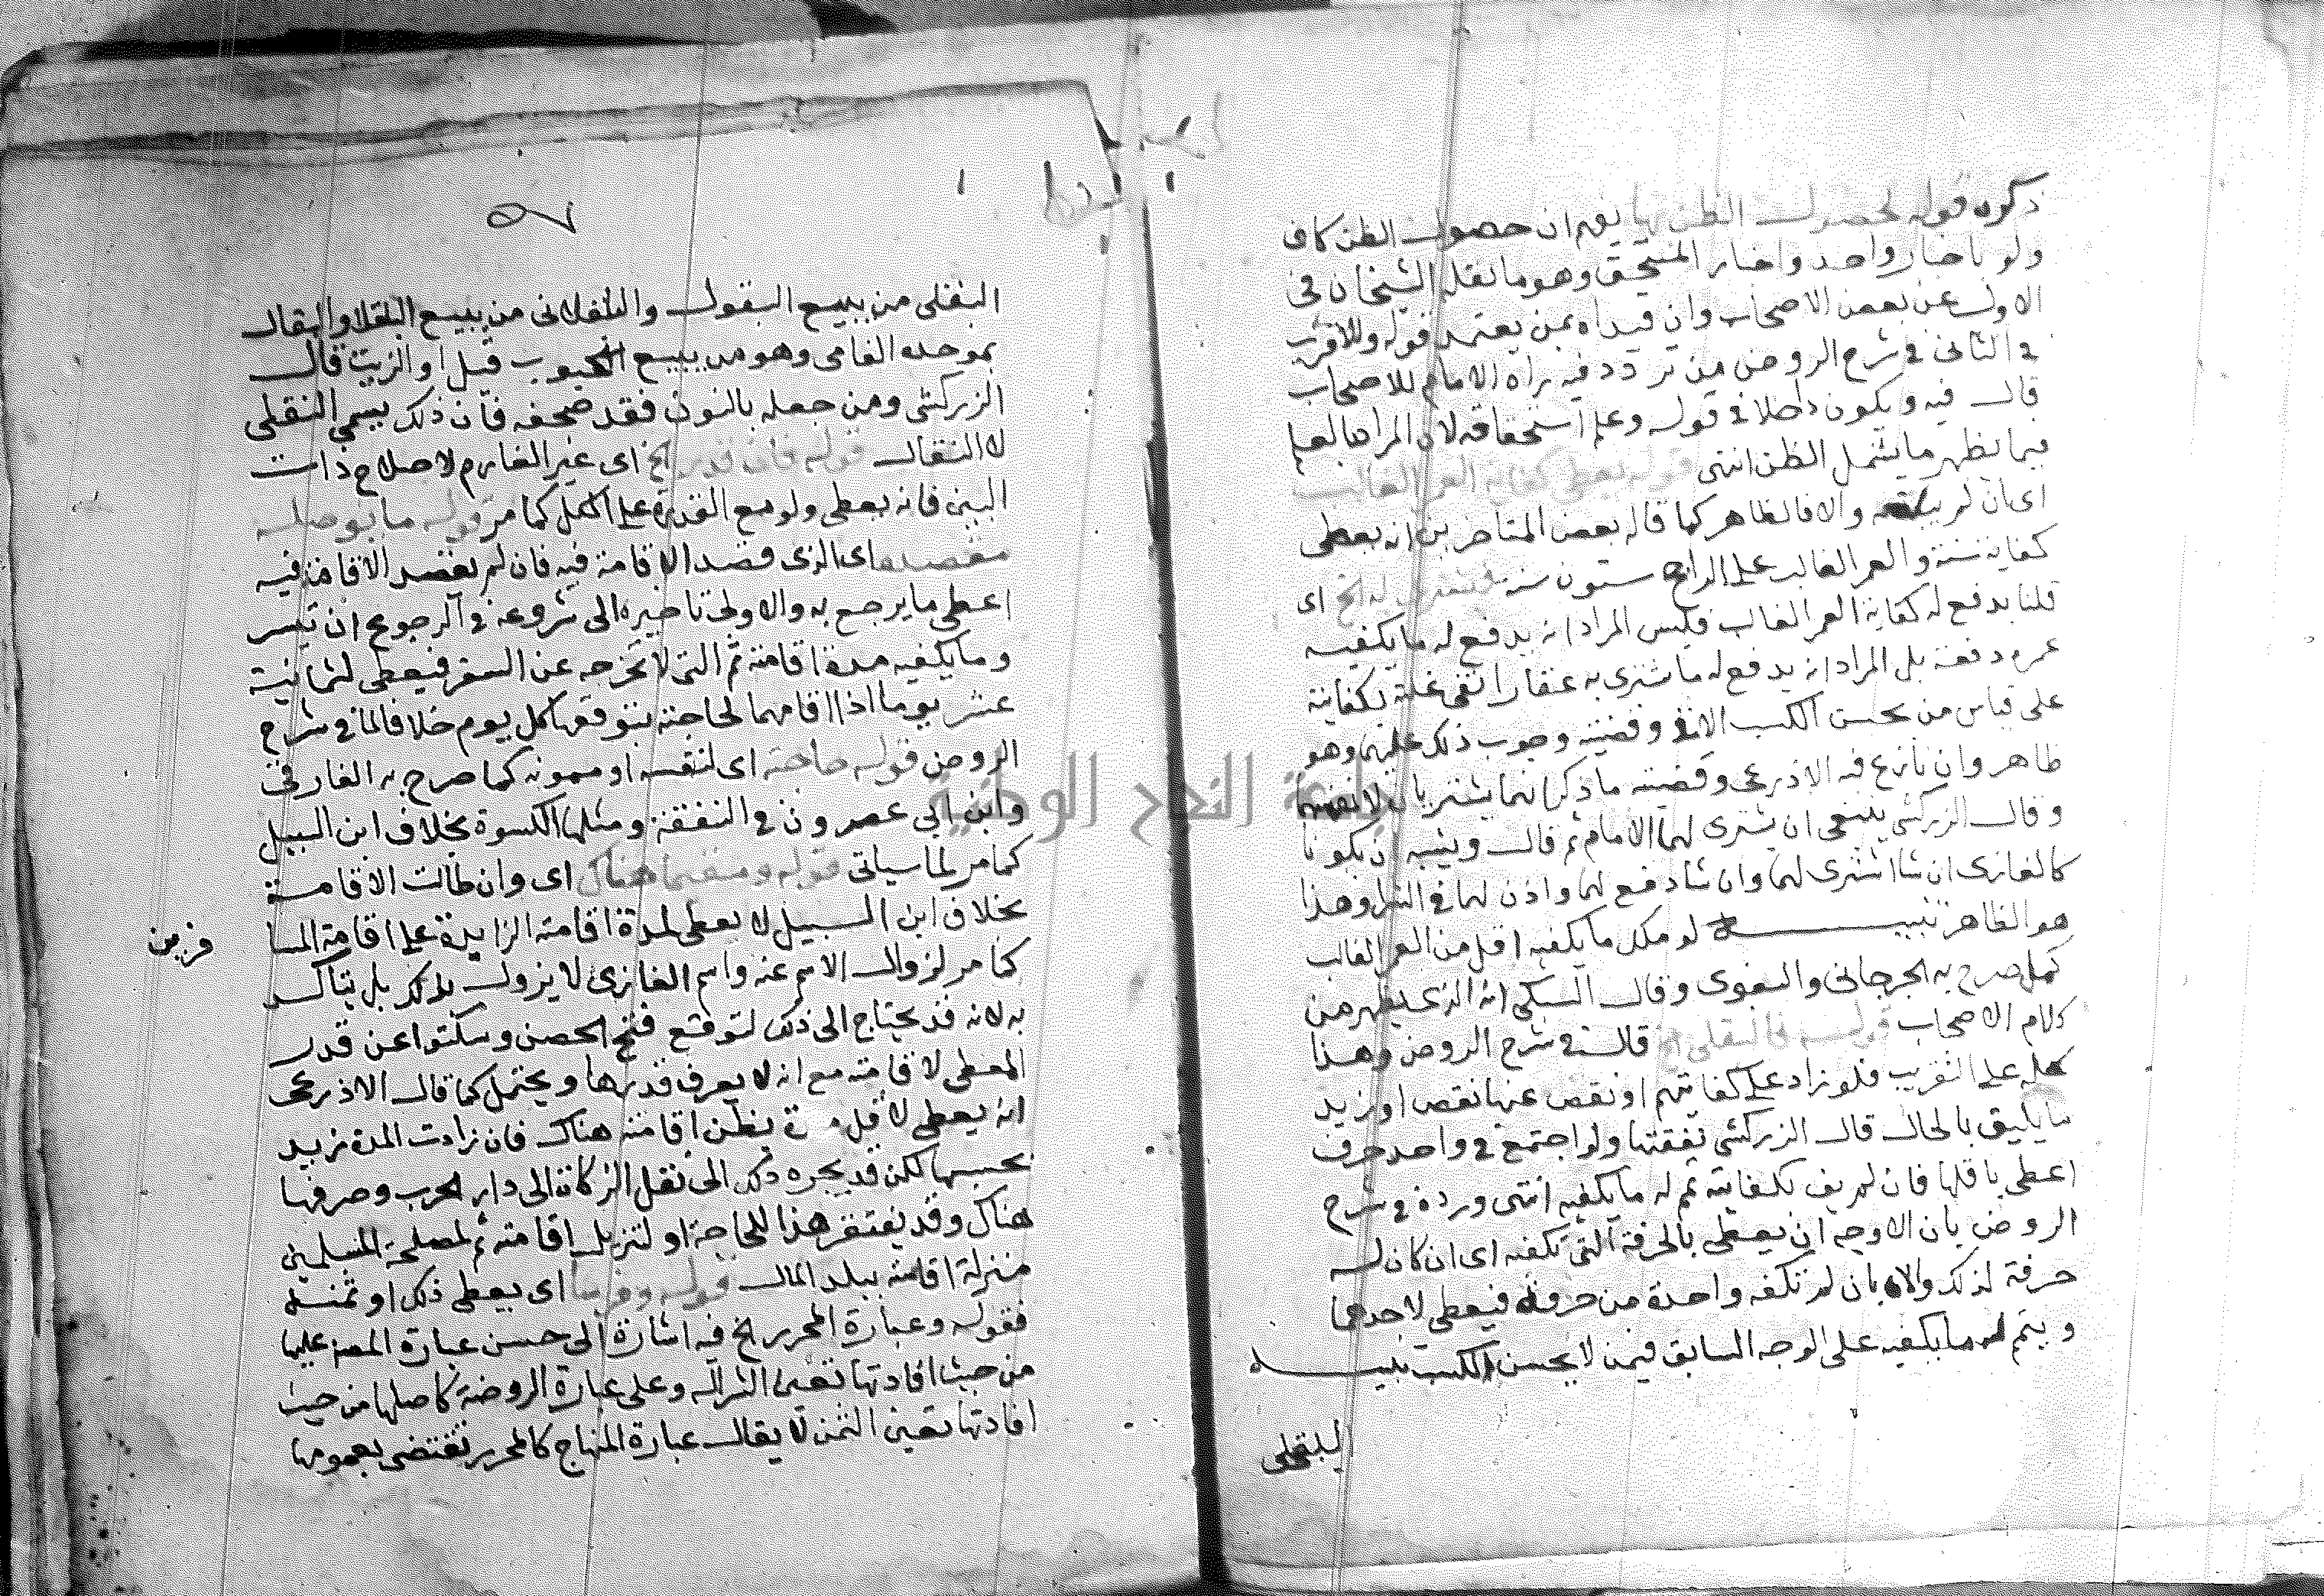 ذكره قوله لحصول الظن بها يفهم ان حصول الظن كاف
ولو باخبار واحد واخبار المستحق وهو ما نقله الشيخان في
الاول عن بعض الاصحاب وان قيداه بمن يعتمد قوله وللاقرب
في الثاني في شرح الروض من تردد فيه راه الامام للاصحاب
قال فيه ويكون داخلا في قوله وعلم استحقاقه لان المراد بالعلم
فيما يظهر ما يشمل الظن انتهى قوله يعطى كفاية العمر الغالب
اى ان لم والا فالظاهر كما قاله بعض المتاخرين انه يعطى
كفاية سنة والعمر الغالب على الراجح ستون سنة له الخ اى
قلنا يدفع له كفاية العمر الغالب فليس المراد انه يدفع له ما يكفيه
عمره دفعة بل المراد انه يدفع له ما يشترى به عقارا تفي غلته بكفايته
على قياس من يحسن الكسب الاتى وقضيته وجوب ذلك عليهما وهو
ظاهر وان نازع فيه الاذرعى وقضيته ما ذكر انهما يشتريان لانفسهما
وقال الزركشى ينبغى ان يشترى لهما الامام ثم قال ويشبه ان يكونا
كالغازى ان شا اشترى لهما وان شا دفع لهما واذن لهما في الشرا وهذا
هو الظاهر تنبيه لو ملك ما يكفيه اقل من العمر الغالب
كمل صرح به الجرجاني والبغوى وقال السبكى انه الذى يظهر من
كلام الاصحاب قوله فالبقلى الخ قال في شرح الروض وهذا
كله على التقريب فلو زاد على كفايتهم او نقص عنها نقص او زيد
ما يليق بالحال قال الزركشى تفقتها ولو اجتمع في واحد حرف
اعطى باقلها فان لم يف بكفايته تمم له ما يكفيه انتهى ورده في شرح
الروض بان الاوجه ان يعطى بالحرفة التى تكفيه اى ان كان له
حرفة لذلك والا بان لم تكفه واحدة من حرفه فيعطى لاحدهما
ويتمم له ما يكفيه على الوجه السابق فيمن لا يحسن الكسب تنبيه
البقلى
٥٧
البقلى من يبيع البقول والباقلانى من يبيع الباقلا والبقال
بموحده الفامى وهو من يبيع الحبوب قيل او الزيت قال
الزركشى ومن جعله بالنون فقد صحفه فان ذلك يسمى النقلى
لا النقال قوله فان قدر الخ اى غير الغارم لاصلاح ذات
البين فانه يعطى ولو مع القدرة على الكل كما مر قوله ما يوصله
مقصده اى الذى قصد الاقامة فيه فان لم يقصد الاقامة فيه
اعطى ما يرجع به والاولى تاخيره الى شروعه في الرجوع ان تيسر
وما يكفيه مدة اقامته ثم التى لا تخرجه عن السفر فيعطى لثمانية
عشر يوما اذا اقامهما لحاجته يتوقعها كل يوم خلافا لما في شرح
الروض قوله حاجته اى لنفسه او ممونه كما صرح به الفارقى
وابن ابى عصرون في النفقة ومثلها الكسوة بخلاف ابن السبيل
كما مر لما سياتى قوله ومقيما هناك اى وان طالت الاقامة
بخلاف ابن السبيل لا يعطى لمدة اقامته الزايدة على اقامة المسا
فرين
كما مر لزوال الاسم عنه واسم الغازى لا يزول بذلك بل يتاكد
به لانه قد يحتاج الى ذلك لتوقع فتح الحصن وسكتوا عن قدر
المعطى لاقامته مع انه لا يعرف قدرها ويحتمل كما قال الاذرعى
انه يعطى لاقل مدة يظن اقامته هناك فان زادت المدة زيد
بحسبها لكن قد يجره ذلك الى نقل الزكاة الى دار الحرب وصرفها
هناك وقد يغتفر هذا للحاجة او لتنزيل اقامته ثم لمصلحة المسلمين
منزلة اقامته ببلد المال قوله وفرسا اى يعطى ذلك او ثمنه
فقوله وعبارة المحرر الخ فيه اشارة الى حسن عبارة المص عليها
من حيث افادتها تعين الشرا له وعلى عبارة الروضة كاصلها من حيث
افادتها تعين الثمن لا يقال عبارة المنهاج كالمحرر تقتضى بعمومها
جامعة النجاح الوطنية